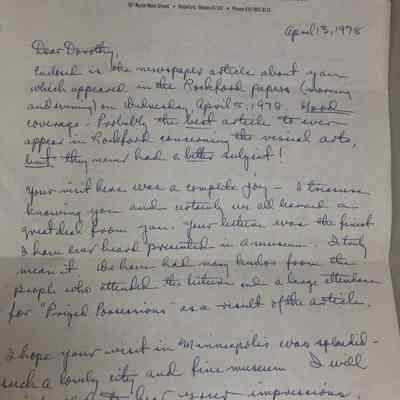 737 North Main Street • Rockford, Illinois 61103 • Phone 815/965-3131
April 13, 1978
Dear Dorothy,
Enclosed is the newspaper article about you
which appeared in the Rockford papers (morning
and evening) on Wednesday, April 5, 1978. Good
coverage - Probably the best article to ever
appear in Rockford concerning the visual arts,
but they never had a better subject!
Your visit here was a complete joy - I treasure
knowing you and certainly we all learned a
great deal from you. Your lecture was the finest
I have ever heard presented in a museum. I truly
mean it. We have had many kudos from the
people who attended the lecture and a large attendance
for "Prized Possessions" as a result of the article.
I hope your visit in Minneapolis was splendid -
such a lovely city and fine museum. I will
your impressions.